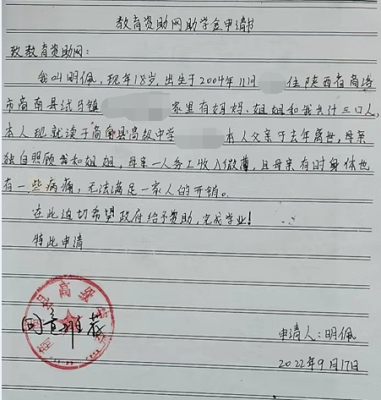 教育资助网助学金申请书
致教育资助网：
我叫明佩，现年18岁，出生于2004年11月 住陕西省商洛
市商南县试马镇 家里有妈妈、姐姐和我共计三口人，
本人现就读于商南县高级中学 本人父亲于去年离世，母亲
独自照顾我和姐姐，母亲一人务工收入微薄，且母亲有时身体也
有一些病痛，无法满足一家人的开销。
在此迫切希望政府给予赞助，完成学业！
特此申请
县高级
同意推荐
申请人：明佩
2022年9月17日